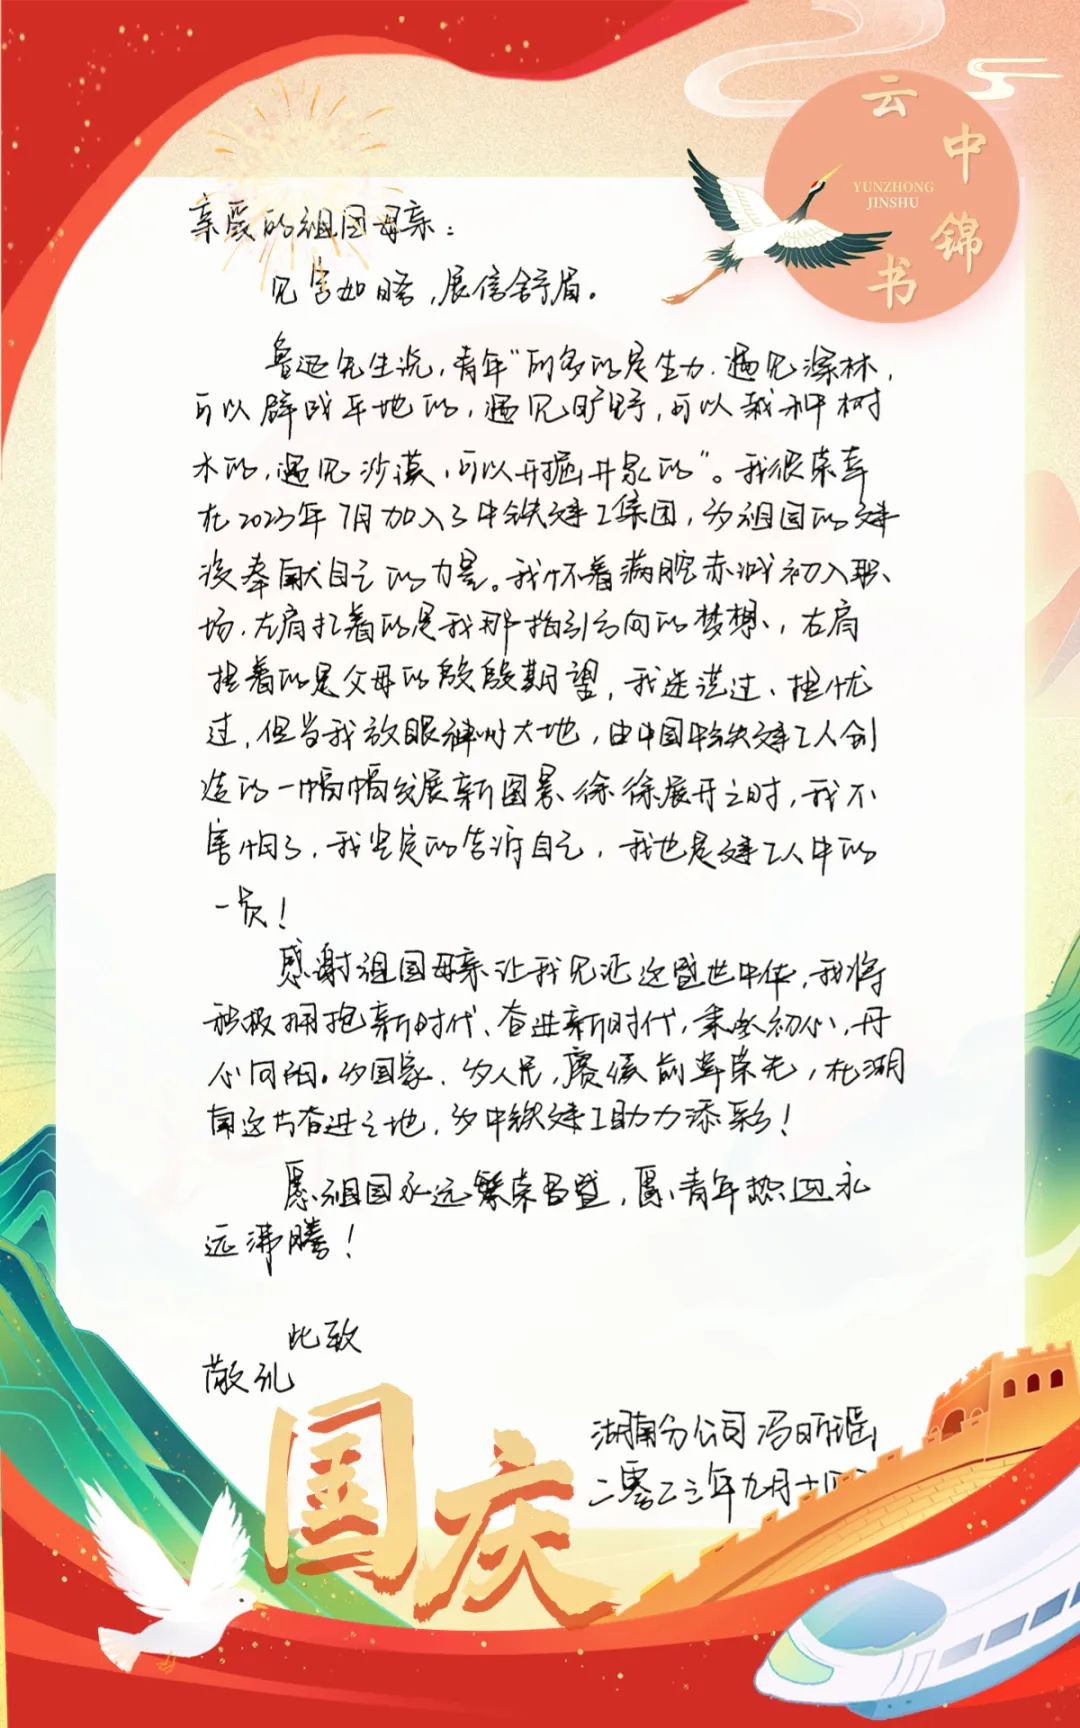 云中锦书
YUNZHONG
JINSHU
亲爱的祖国母亲：
见字如晤，展信舒眉。
鲁迅先生说，青年“所多的是生力，遇见深林，
可以辟成平地的，遇见旷野，可以栽种树
木的，遇见沙漠，可以开掘井泉的”。我很荣幸
在2023年7月加入了中铁建工集团，为祖国的建
设奉献自己的力量。我怀着满腔赤诚初入职
场，左肩扛着的是我那指引方向的梦想，右肩
担着的是父母的殷殷期望，我迷茫过、担忧
过，但当我放眼神州大地，由中国中铁建工人创
造的一幅幅发展新图景徐徐展开之时，我不
害怕了，我坚定的告诉自己，我也是建工人中的
一员！
感谢祖国母亲让我见证这盛世中华，我将
积极拥抱新时代、奋进新时代，秉承初心，丹
心向阳。为国家、为人民，赓续前辈荣光，在湖
南这片奋进之地，为中铁建工助力添彩！
愿祖国永远繁荣昌盛，愿青年热血永
远沸腾！
此致
敬礼
湖南分公司 冯昕瑶
二零二三年九月十四
国庆